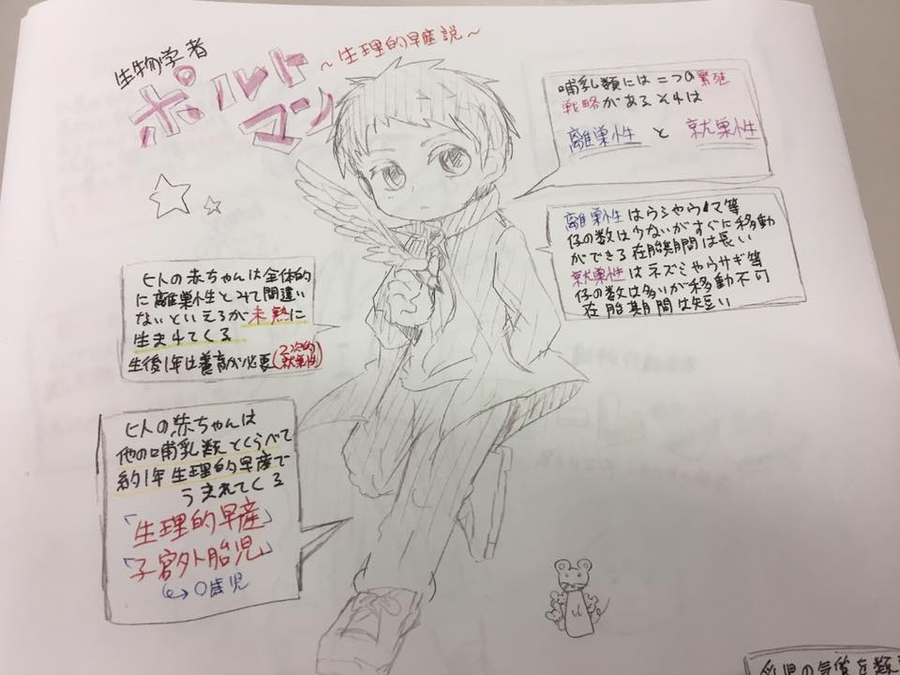 生物学者
ポルト
マン
～生理的早産説～
哺乳類には二つの繁殖
戦略がある それは
離巣性 と 就巣性
離巣性はウシやウマ等
仔の数は少ないがすぐに移動
ができる 在胎期間は長い
就巣性はネズミやウサギ等
仔の数は多いが移動不可
在胎期間は短い
ヒトの赤ちゃんは全体的
に離巣性とみて間違い
ないといえるが未熟に
生まれてくる
生後1年は養育が必要(2次的
就巣性)
ヒトの赤ちゃんは
他の哺乳類とくらべて
約1年生理的早産で
うまれてくる
「生理的早産」
「子宮外胎児」
↪0歳児
乳児の気質を類